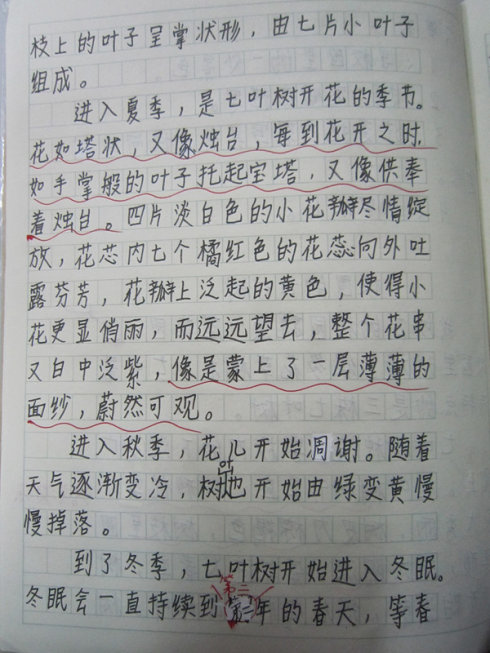 枝上的叶子呈掌状形，由七片小叶子
组成。
进入夏季，是七叶树开花的季节。
花如塔状，又像烛台，每到花开之时，
如手掌般的叶子托起宝塔，又像供奉
着烛台。四片淡白色的小花瓣尽情绽
放，花芯内七个橘红色的花蕊向外吐
露芬芳，花瓣上泛起的黄色，使得小
花更显俏丽，而远远望去，整个花串
又白中泛紫，像是蒙上了一层薄薄的
面纱，蔚然可观。
进入秋季，花儿开始凋谢。随着
天气逐渐变冷，树叶也开始由绿变黄慢
慢掉落。
到了冬季，七叶树开始进入冬眠。
第二
冬眠会一直持续到年的春天，等春